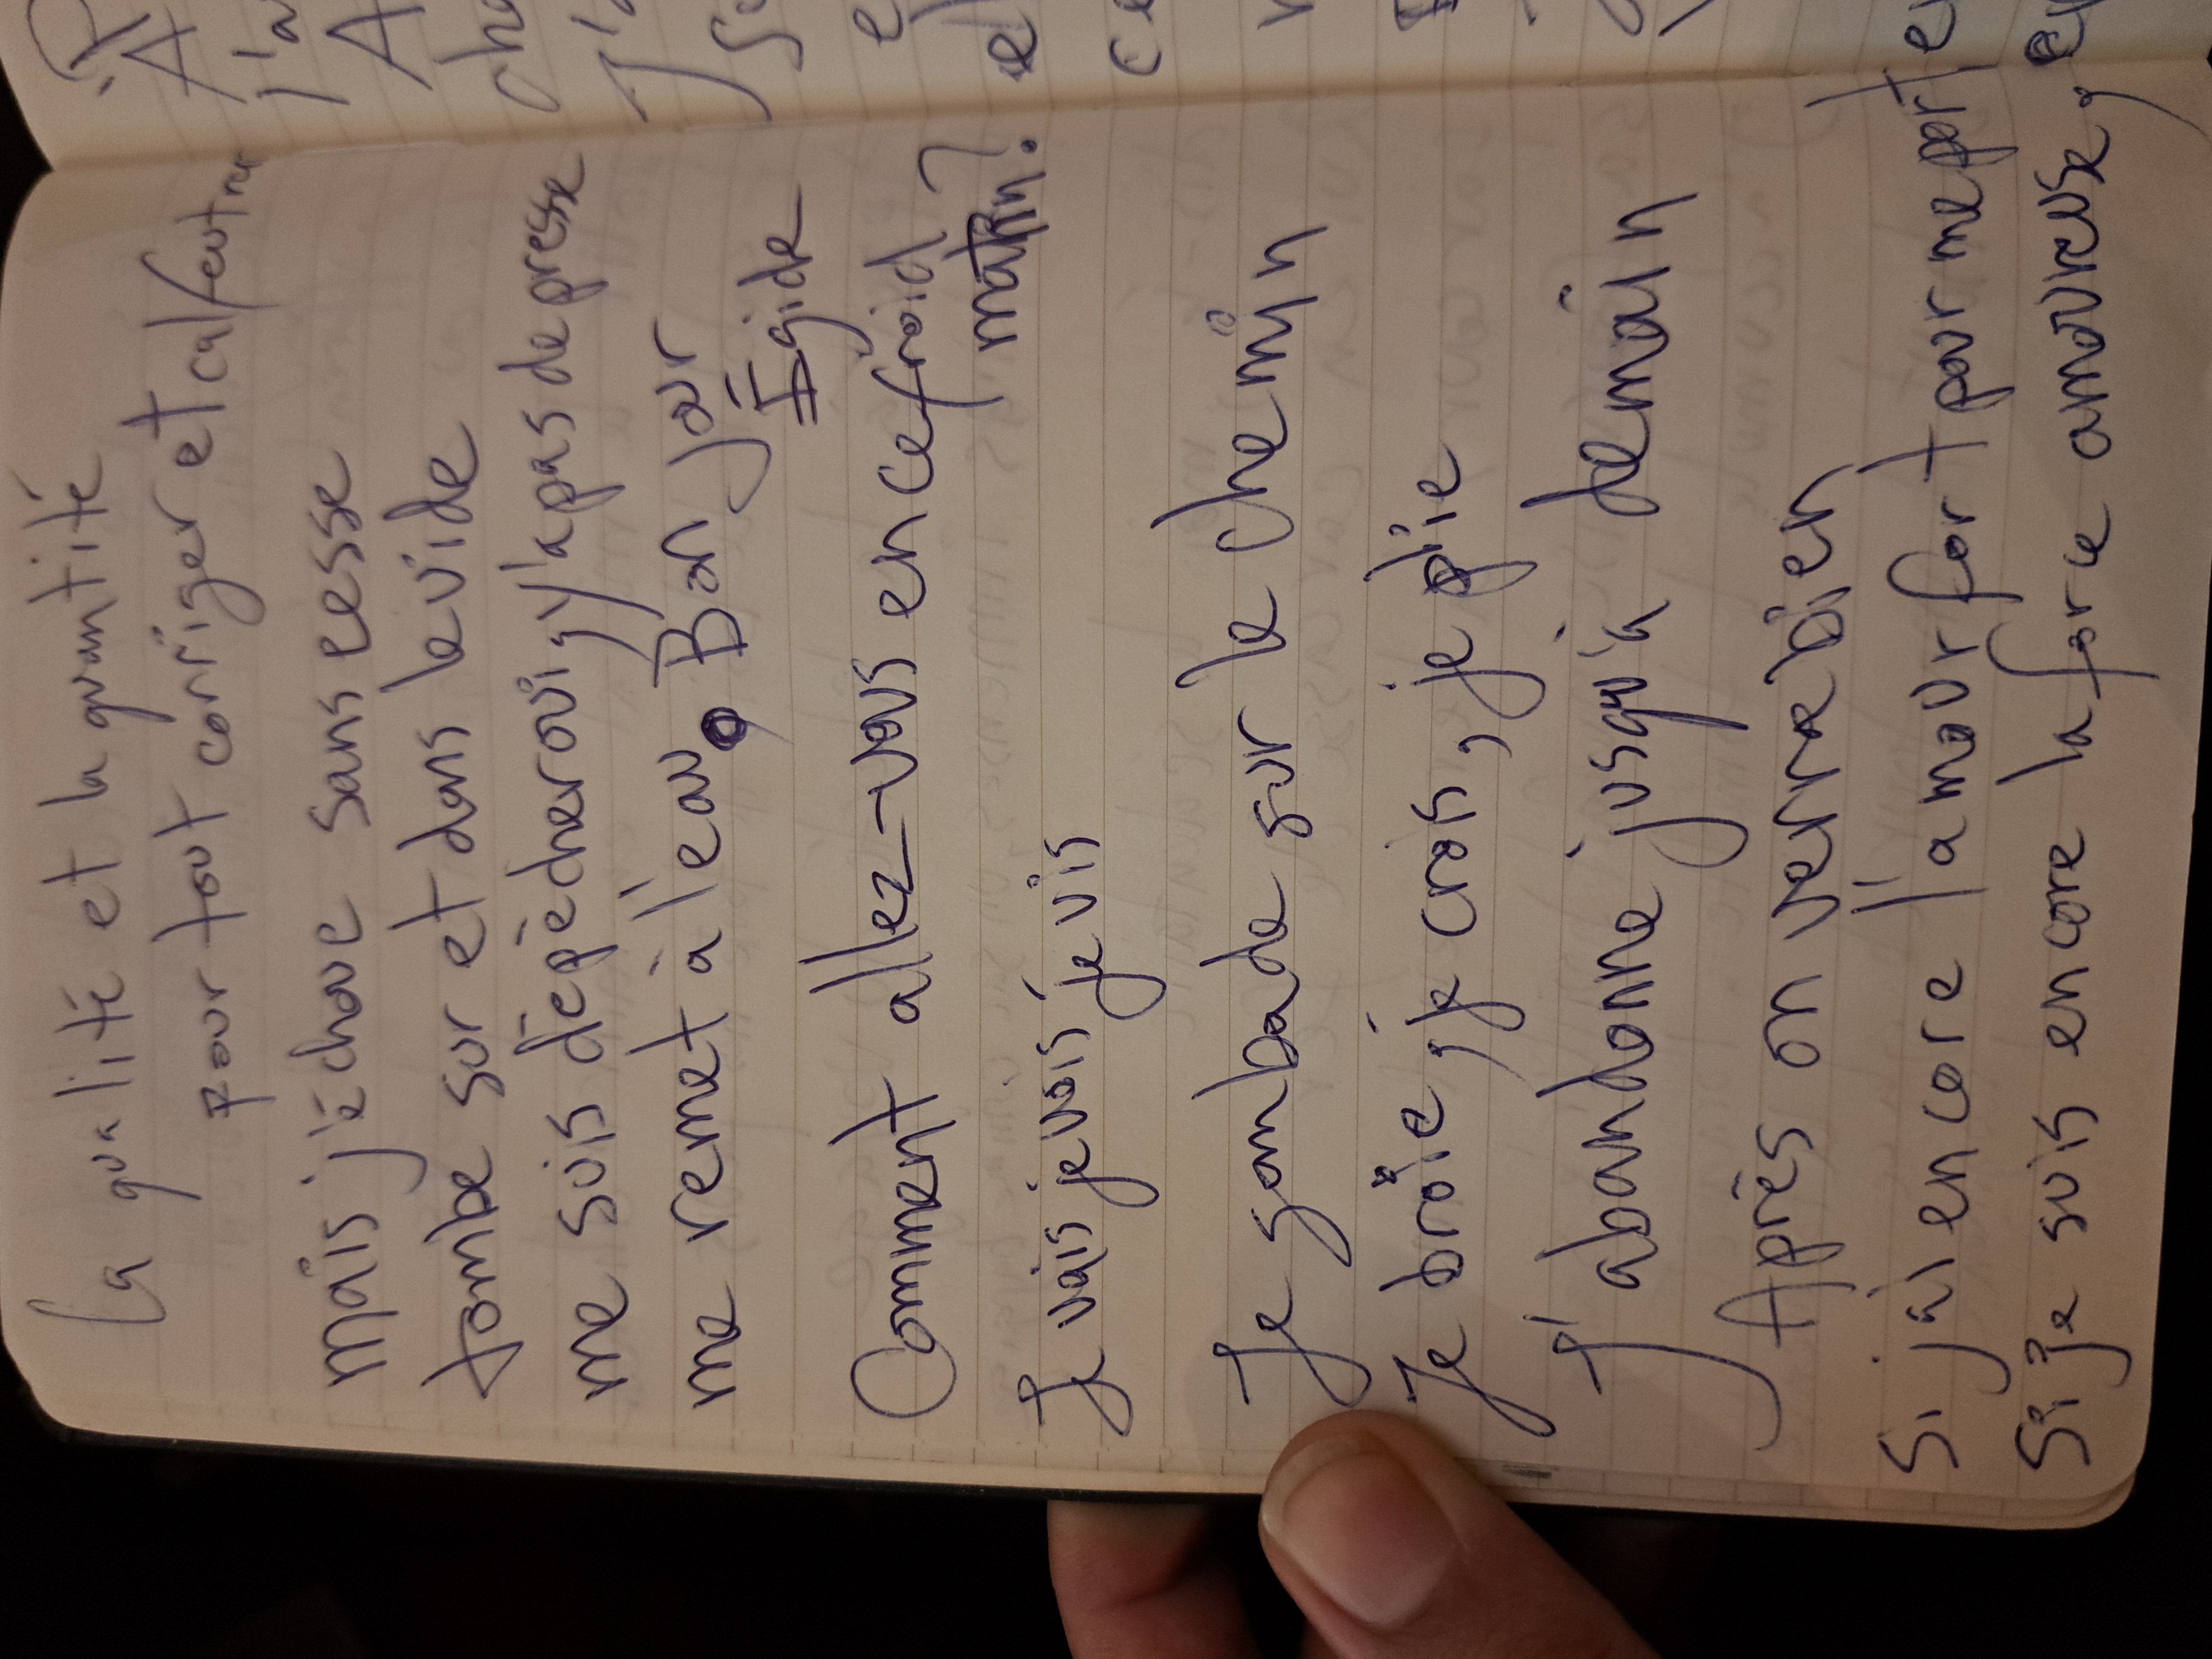 La qualité et la quantité
pour tout corriger et calfeutre
mais j'échoue sans cesse
tombe sur et dans le vide
me suis déjà cherovi, y'a pas de presse
me remet à l'eau. Bon jour
Egide
Comment allez-vous en ce froid
matin?
Je vais je vais je vis
Je gambade sur le chemin
Je broie, je crois, je plie
J'abandonne jusqu'à demain
Après on verra bien
Si j'ai encore l'amour fort pour me porte
Si je suis encore la force amoureuse,